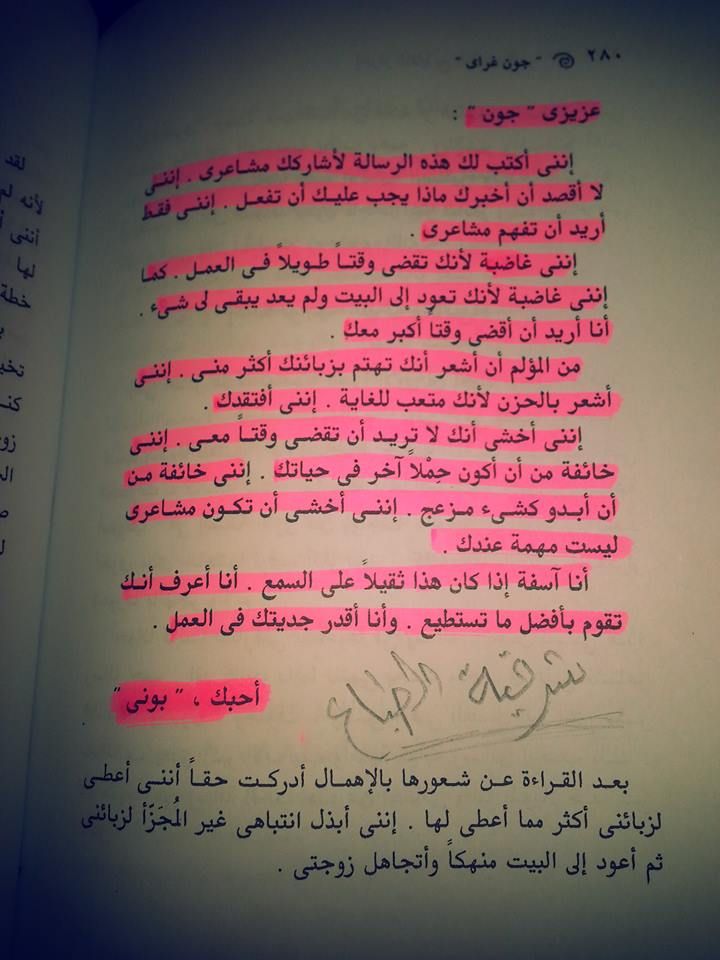 ٢٨٠ "جون غراى"
عزيزى " جون " :
إننى أكتب لك هذه الرسالة لأشاركك مشاعرى . إننى
لا أقصد أن أخبرك ماذا يجب عليك أن تفعل . إننى فقط
أريد أن تفهم مشاعرى .
إننى غاضبة لأنك تقضى وقتاً طويلاً فى العمل . كما
إننى غاضبة لأنك تعود إلى البيت ولم يعد يبقى لى شىء .
أنا أريد أن أقضى وقتاً أكبر معك .
من المؤلم أن أشعر أنك تهتم بزبائنك أكثر منى . إننى
أشعر بالحزن لأنك متعب للغاية . إننى أفتقدك .
إننى أخشى أنك لا تريد أن تقضى وقتاً معى . إننى
خائفة من أن أكون حِمْلاً آخر فى حياتك . إننى خائفة من
أن أبدو كشىء مزعج . إننى أخشى أن تكون مشاعرى
ليست مهمة عندك .
أنا آسفة إذا كان هذا ثقيلاً على السمع . أنا أعرف أنك
تقوم بأفضل ما تستطيع . وأنا أقدر جديتك فى العمل .
أحبك ، " بونى "
شرقية الطباع
بعد القراءة عن شعورها بالإهمال أدركت حقاً أننى أعطى
لزبائنى أكثر مما أعطى لها . إننى أبذل انتباهى غير المُجَزّأ لزبائنى
ثم أعود إلى البيت منهكاً وأتجاهل زوجتى .
لقد
لأنه لم
لها
خطة